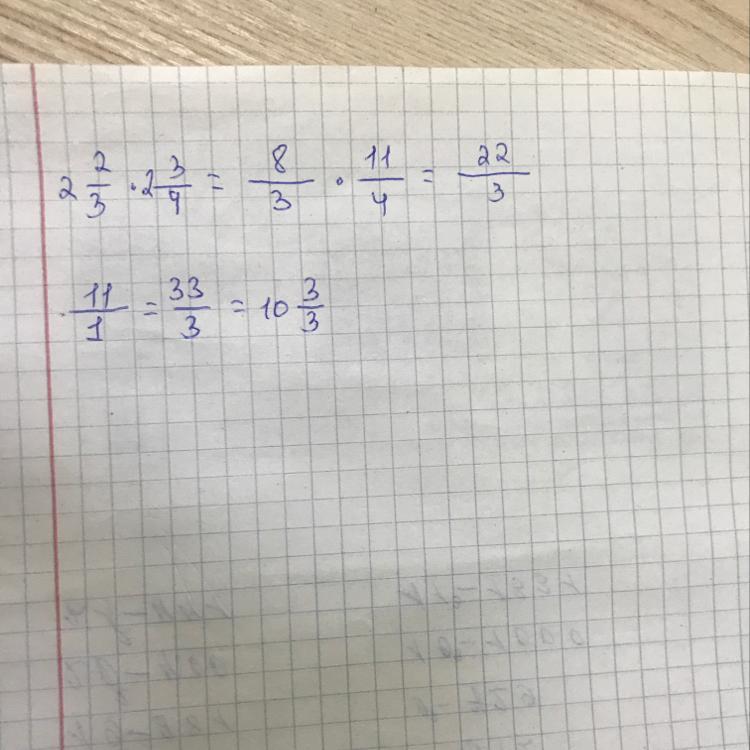 2 2/3 · 2 3/4 = 8/3 · 11/4 = 22/3
· 11/1 = 33/3 = 10 3/3